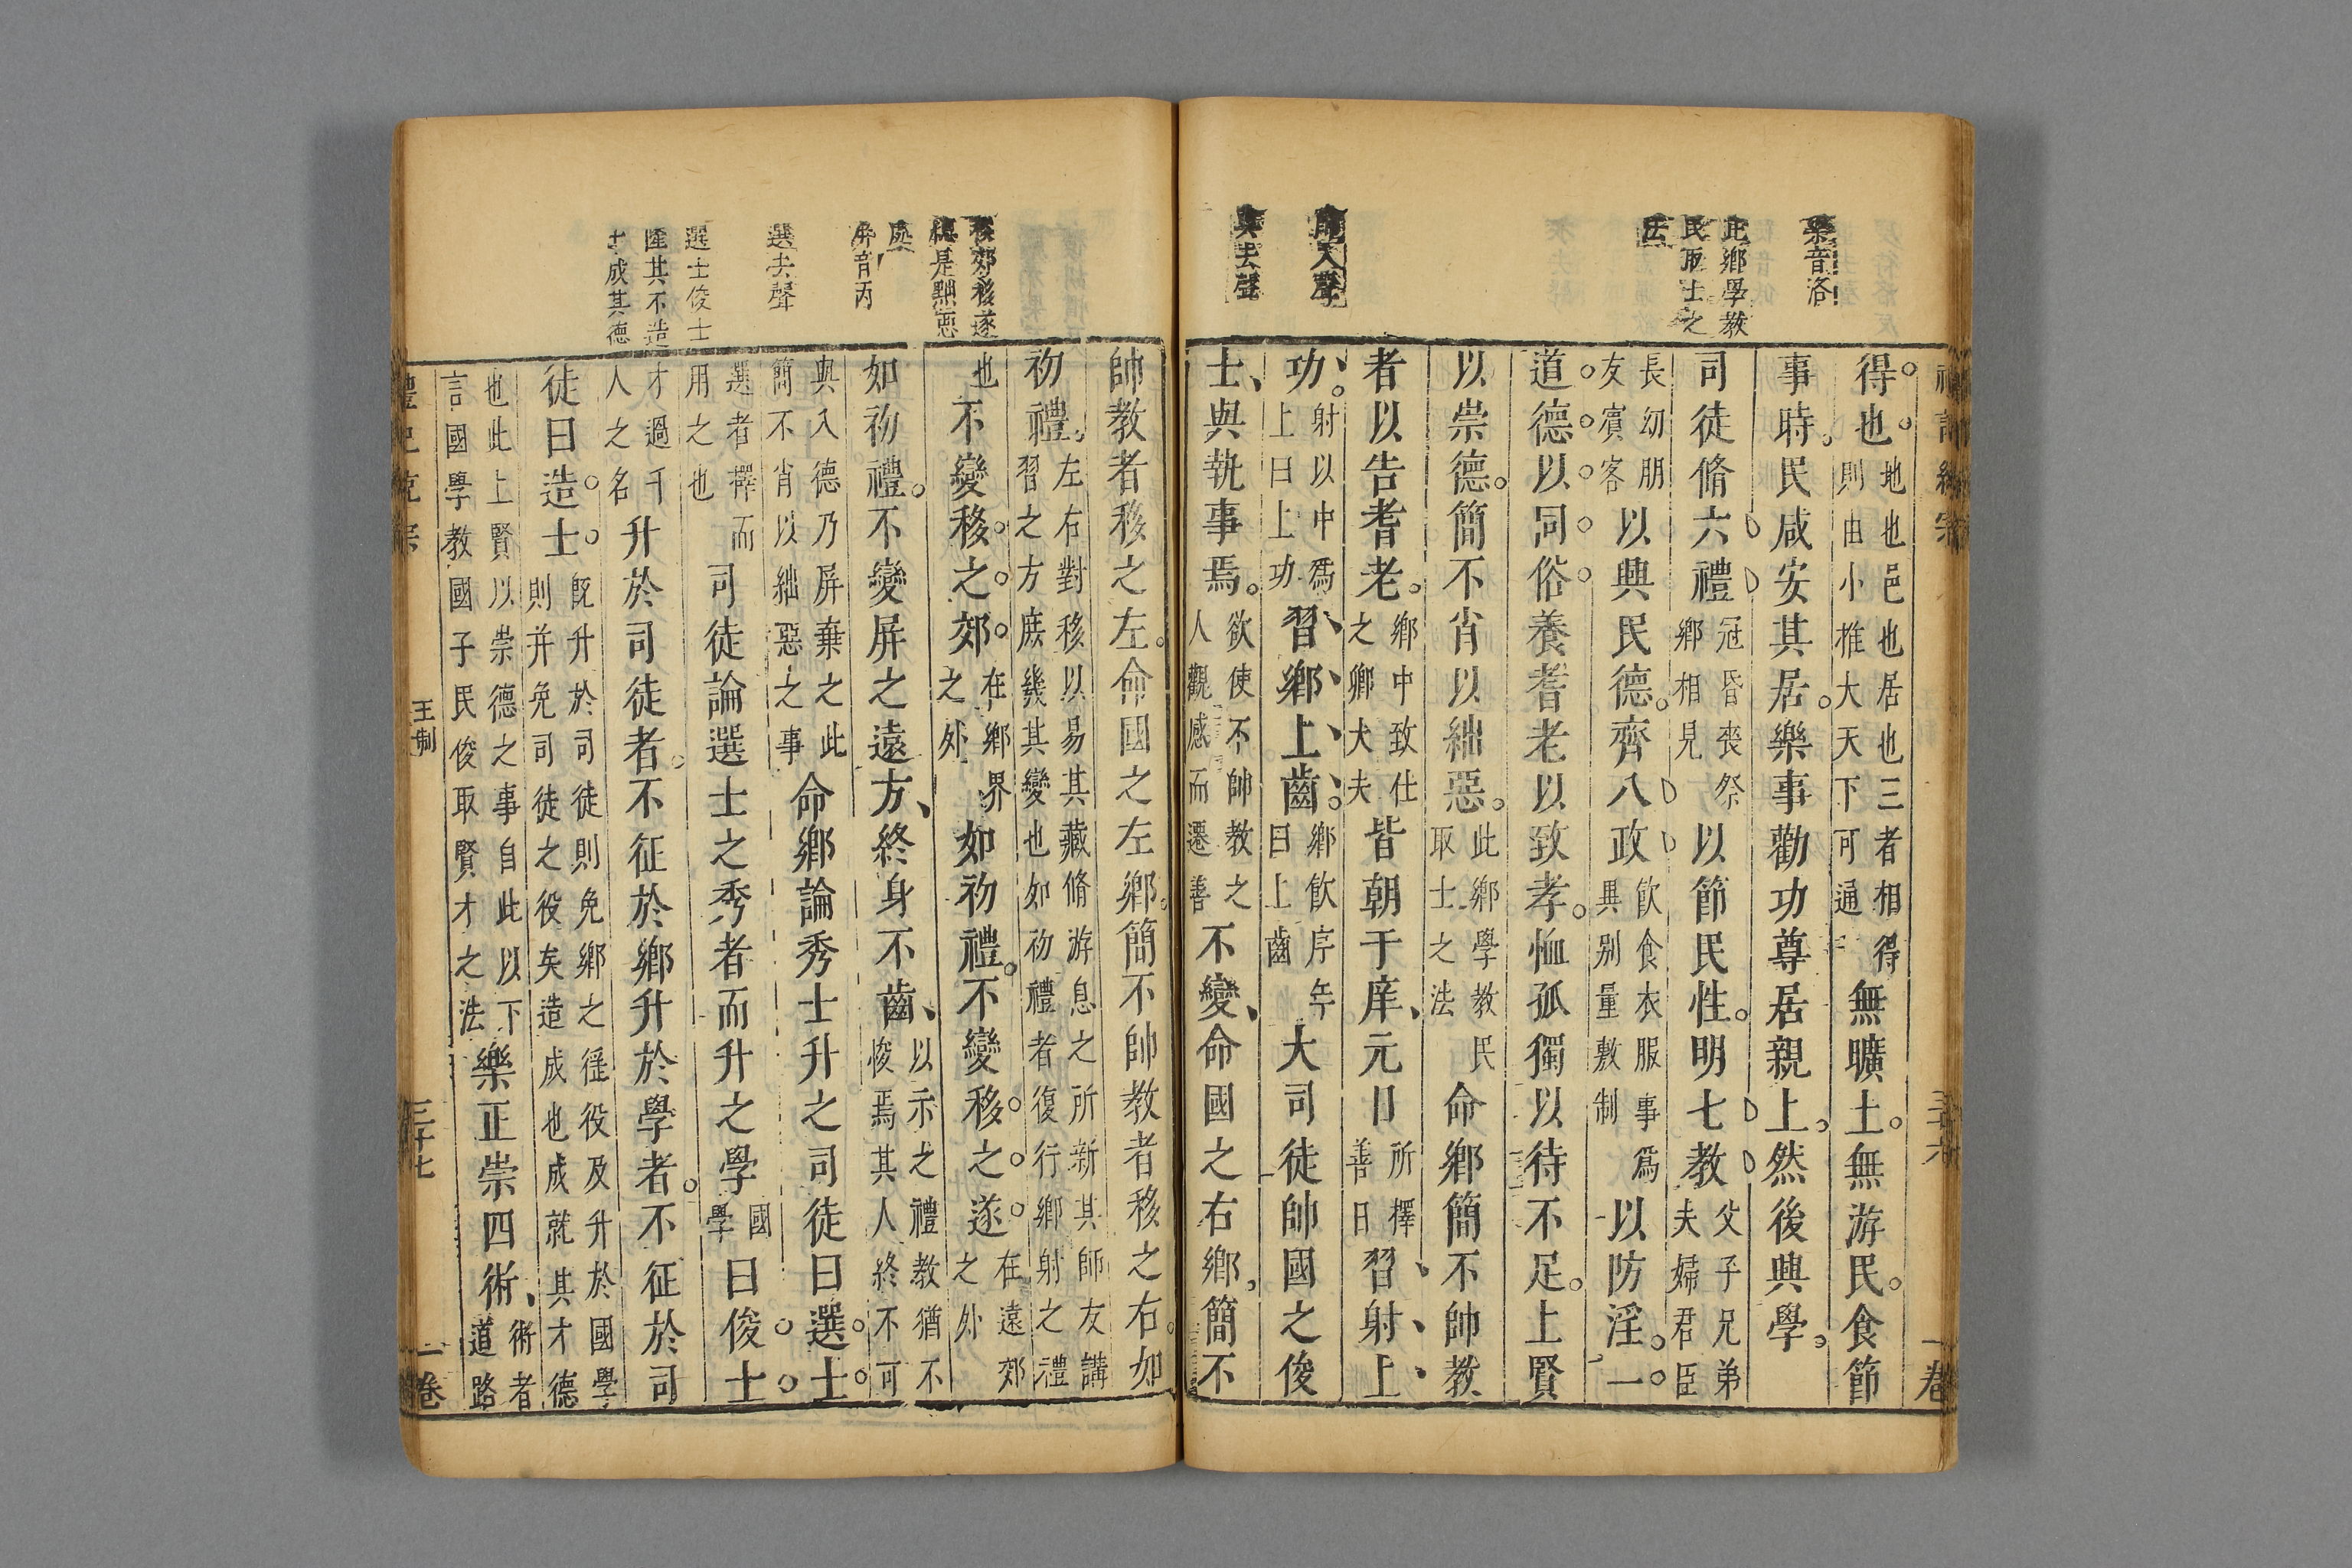 樂音洛
此鄉學教
民取士之
法
上入聲
與去聲
得也地也邑也居也三者相得則由小推大天下可通無曠土無游民食節
事時民咸安其居樂事勸功尊居親上然後興學
司徒脩六禮冠昏喪祭鄉相見以節民性明七教父子兄弟夫婦君臣
長幼朋友賓客以興民德齊八政飲食衣服事爲異别量數制以防淫一
道德以同俗養耆老以致孝恤孤獨以待不足上賢
以崇德簡不肖以絀惡此鄉學教民取士之法命鄉簡不帥教
者以告耆老鄉中致仕之鄉大夫皆朝于庠元日所擇善日習射上
功射以中爲上曰上功習鄉上齒鄉飲序年曰上齒大司徒帥國之俊
士與執事焉欲使不帥教之人觀感而遷善不變命國之右鄉簡不
移郊移遂
總是黜惡
處
屏音丙
選去聲
選士俊士
隆其不造
士成其德
帥教者移之左命國之左鄉簡不帥教者移之右如
初禮左右對移以易其藏脩游息之所新其師友講習之方庶幾其變也如初禮者復行鄉射之禮
也不變移之郊在鄉界之外如初禮不變移之遂在遠郊之外
如初禮不變屏之遠方終身不齒以示之禮教猶不悛焉其人終不可
與入德乃屏棄之此簡不肖以絀惡之事命鄉論秀士升之司徒曰選士
選者擇而用之也司徒論選士之秀者而升之學國學曰俊士
才過千人之名升於司徒者不征於鄉升於學者不征於司
徒曰造士既升於司徒則免鄉之徭役及升於國學則并免司徒之役矣造成也成就其才德
也此上賢以崇德之事自此以下言國學教國子民俊取賢才之法樂正崇四術術者道路
王制
三十七
一卷